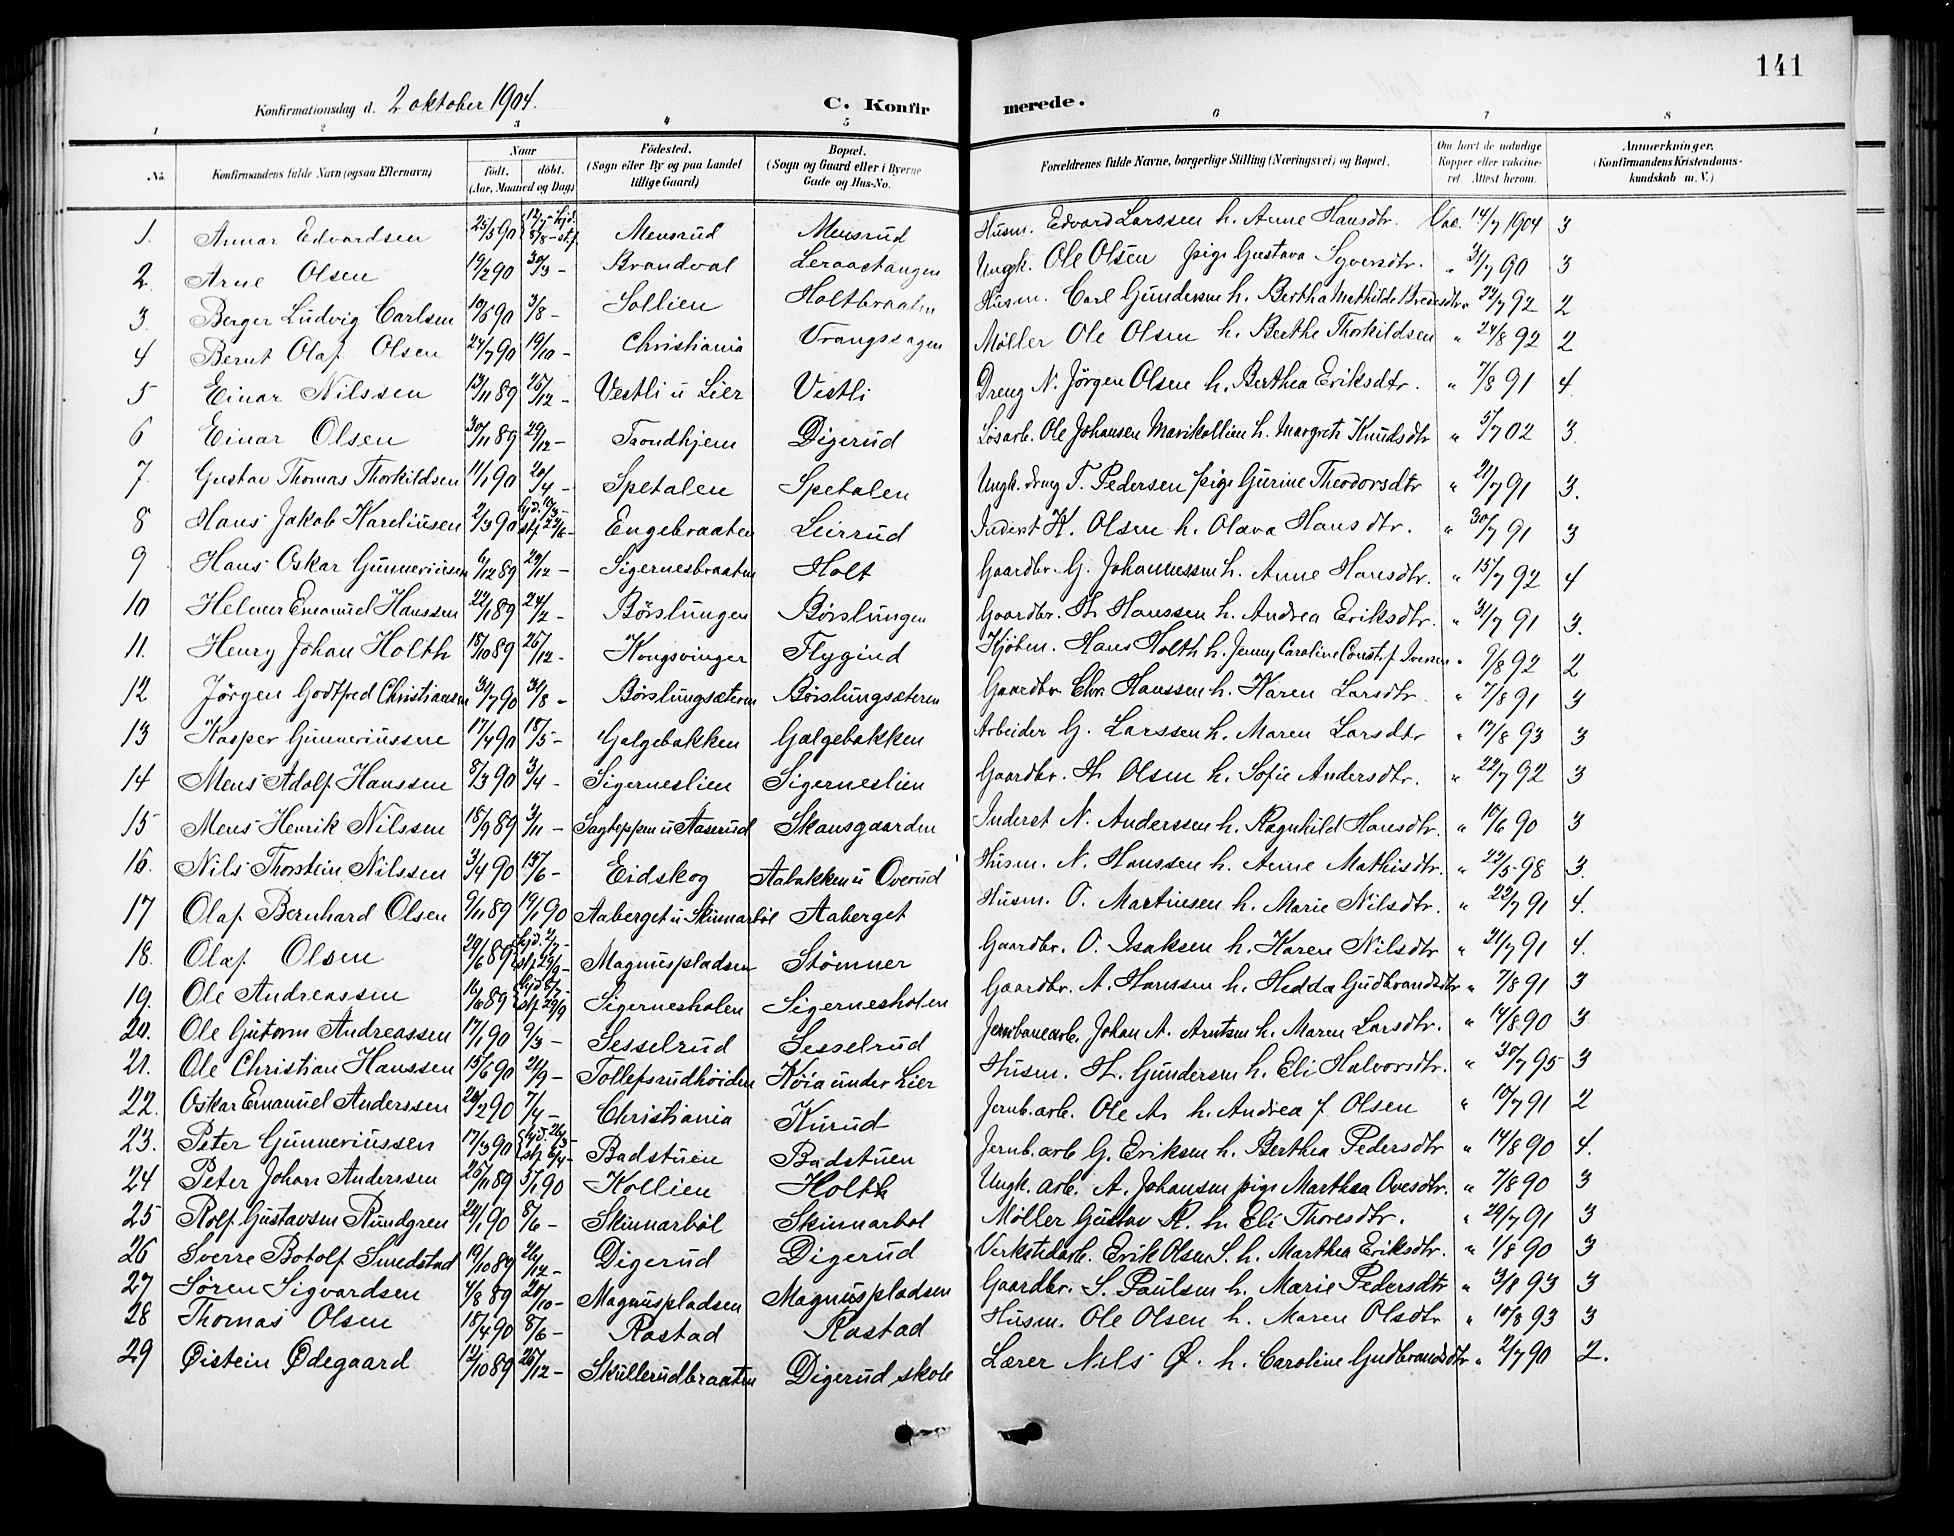 141
Konfirmationsdag d. 2 oktober 1904. C. Konfirmerede.
1 2 3 4 5 6 7 8
No. Konfirmandens fulde Navn (ogsaa Efternavn) Naar födt. döbt. (Aar, Maaned og Dag) Födested. (Sogn eller By og paa Landet tillige Gaard) Bopæl. (Sogn og Gaard eller i Byerne Gade og Hus-No. Forældrenes fulde Navne, borgerlige Stilling (Næringsvei) og Bopæl. Om havt de naturlige Kopper eller vakcineret Attest herom. Anmerkninger. (Konfirmandens Kristendomskundskab m. V.)
1. Annar Edvardsen 25/5 90 Mensrud Mensrud Husm. Edvard Larssen h. Anne Hansdtr. Vac. 14/7 1904 3
2. Arne Olsen 19/2 90 30/3 - Brandval Leraactangen Ungk. Ole Olsen pige Gustava Syversdtr. " 31/7 90 3
3. Berger Ludvig Carlsen 10/5 90 3/8 - Sollien Holtbraaten Husm. Carl Gundersen h. Bertha Mathilde " 22/7 92 2
4 Bernt Olaf Olsen 24/7 90 19/10 - Christiania Vrangssagen Møller Ole Olsen h. Berthe Thorkildsen " 24/8 92 2
5 Einar Nilssen 13/11 89 25/12 - Vestli u Lier Vestli Dreng N. Jörgen Olsen h. Berthea Eriksdtr. " 7/8 91 4.
6 Einar Olsen 30/11 89 29/12 - Trondhjem Digerud Løsarb. Ole Johansen Marikollien h. Margrete Knudsdtr " 5/7 02 3.
7. Gustav Thomas Thorkildsen 11/1 90 20/4 - Spetalen Spetalen Ungk. dreng T. Pedersen pige Gurine Theodorsdtr " 21/7 91 3.
8 Hans Jakob Kareliusen 2/3 90 Engebraaten Leirrud Inderst K. Olsen h. Olava Hansdtr. " 30/7 91 3
9 Hans Oskar Gunneriusen 6/12 89 29/12 - Sigernesbraaten Holt Gaardbr. G. Johannessen h. Anne Hansdtr. " 15/7 92 4
10 Helmer Emanuel Hanssen 22/1 89 24/2 - Børslungen Børslungen Gaardbr. H. Hanssen h. Andrea Eriksdtr. " 31/7 91 3.
11. Henry Johan Holth 18/10 89 26/12 - Kongsvinger Flygind Kjøbm. Hans Holth h. Jenny Caroline Const. f. Iversen " 9/8 92 2
12 Jörgen Godtfred Christiansen 31/7 90 31/8 - Børslungsæteren Børslungsæteren Gaardbr. Chr. Hanssen h. Karen Larsdtr " 7/8 91 3
13 Kasper Gunneriussen 17/4 90 18/5 - Galgebakken Galgebakken Arbeider G. Larssen h. Maren Larsdtr " 17/8 93 3
14 Mens Adolf Hanssen 8/3 90 3/4 - Sigerneslien Sigerneslien Gaardbr. H. Olsen h. Sofie Andersdtr. " 22/7 92 3
15 Mens Henrik Nilssen 18/9 89 3/11 - Sagteppen u Aaserud Skansgaarden Inderst N. Anderssen h. Ragnhild Hansdtr. " 10/6 90 3
16. Nils Thorstein Nilssen 3/4 90 15/6 - Eidskog Aabakken u Overud Husm. N. Hanssen h. Anne Mathisdtr. " 22/5 98 3.
17 Olaf Bernhard Olsen 9/11 89 19/1 90 Aaberget u Skinnarbøl Aaberget Husm. O. Martinsen h. Marie Nilsdtr. " 22/7 91 4.
18. Olaf Olsen 20/6 89 Magnuspladsen Stømner Gaardbr. O. Isaksen h. Karen Nilsdtr " 21/7 91 4.
19. Ole Andreassen 89 Sigernesholen Sigernesholen Gaardbr. A. Hanssen h. Hedda Gudbrandsdtr " 7/8 91 3
20. Ole Gutorm Andreassen 17/1 90 9/3 - Sesselrud Sesselrud Jernbanearb. Johan A. Arntsen h. Maren Larsdtr. " 14/8 90 3
21. Ole Christian Hanssen 15/6 90 21/9 - Tollefsrudhöiden Köia under Lier Husm. H. Gundersen h. Eli Halvorsdtr. " 30/7 95 3
22. Oskar Emanuel Anderssen 90 7/4 - Christiania Kirud Jernb. arb. Ole A. h. Andrea f. Olsen " 10/7 91 2
23. Peter Gunneriussen 17/3 90 Badstuen Badstuen Jernb. arb G. Eriksen h. Berthea Pedersdtr " 14/8 90 4.
24 Peter Johan Anderssen 25/11 89 5/1 90 Kollien Holth Ungk. arb. A. Johansen pige Marthea Ovesdtr. " 7/8 90 3
25 Rolf Gustavsen Rundgren 90 8/6 - Skinnarbøl Skinnarbøl Møller Gustav R. h. Eli Thoresdtr. " 29/7 91 3
26 Sverre Botolf Smedstad 19/10 89 26/12 - Digerud Digerud Verkstedarb. Erik Olsen S. h. Marthea Eriksdtr. " 1/8 90 3
27 Søren Sigvardsen 4/8 89 20/10 - Magnuspladsen Magnuspladsen Gaardbr. S. Paulsen h. Marie Pedersdtr " 3/8 93 3
28 Thomas Olsen 18/4 90 8/6 - Rastad Rastad Husm. Ole Olsen h. Maren Olsdtr " 10/8 93 3
29 Øistein Ødegaard 12/10 89 26/12 - Skullerudbraaten Digerud skole Lærer Nils Ø. h. Caroline Gudbrandsdtr " 2/7 90 2.